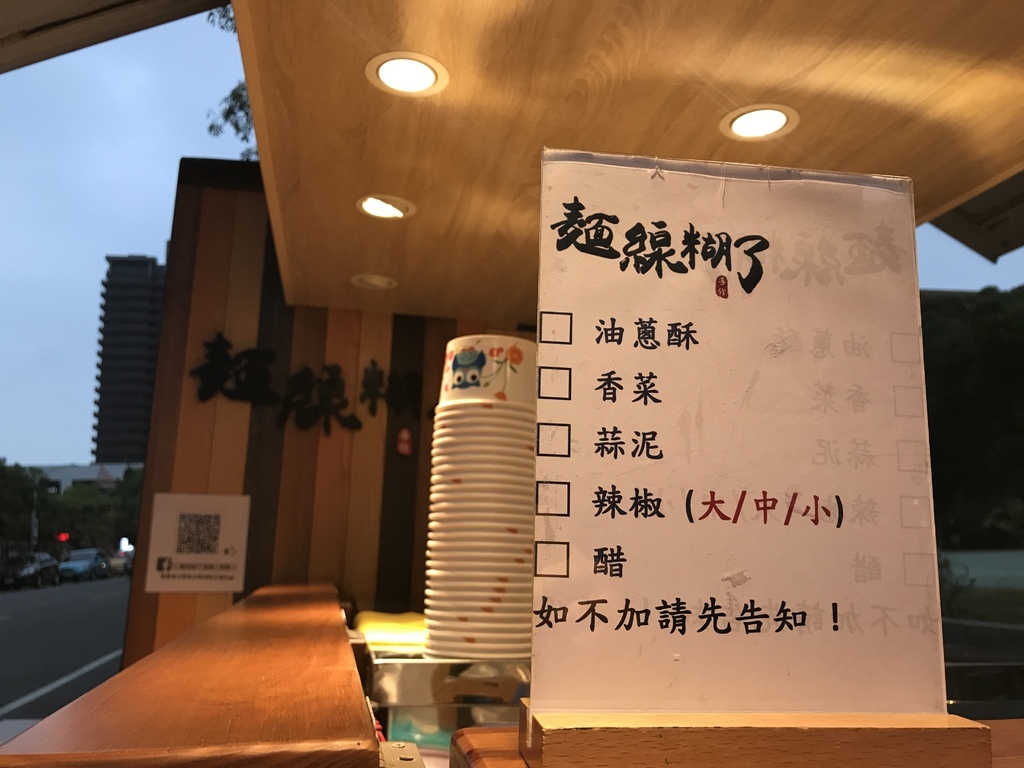 麵線糊了
手作
□ 油蔥酥
□ 香菜
□ 蒜泥
□ 辣椒 (大/中/小)
□ 醋
如不加請先告知！
麵線糊